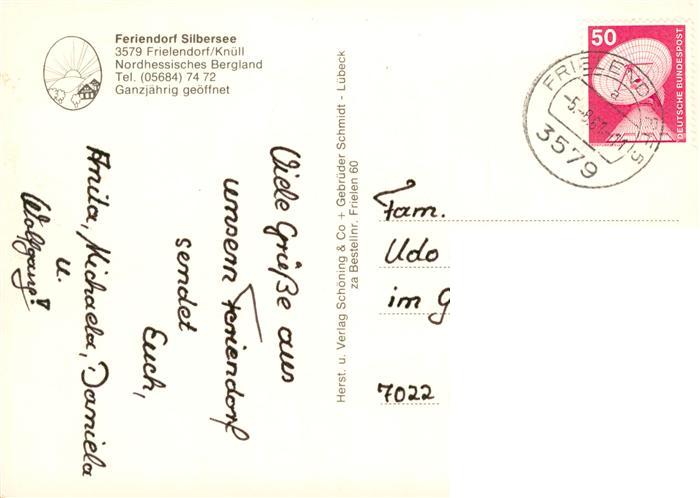 Feriendorf Silbersee
3579 Frielendorf/Knüll
Nordhessisches Bergland
Tel. (05684) 74 72
Ganzjährig geöffnet
Viele Grüße aus
unserm Feriendorf
sendet
Euch,
Anita, Michaela, Daniela
u.
Wolfgang!
Herst. u. Verlag Schöning & Co + Gebrüder Schmidt - Lübeck
za Bestellnr. Frielen 60
50
DEUTSCHE BUNDESPOST
3579
Fam.
Udo
im G
7022